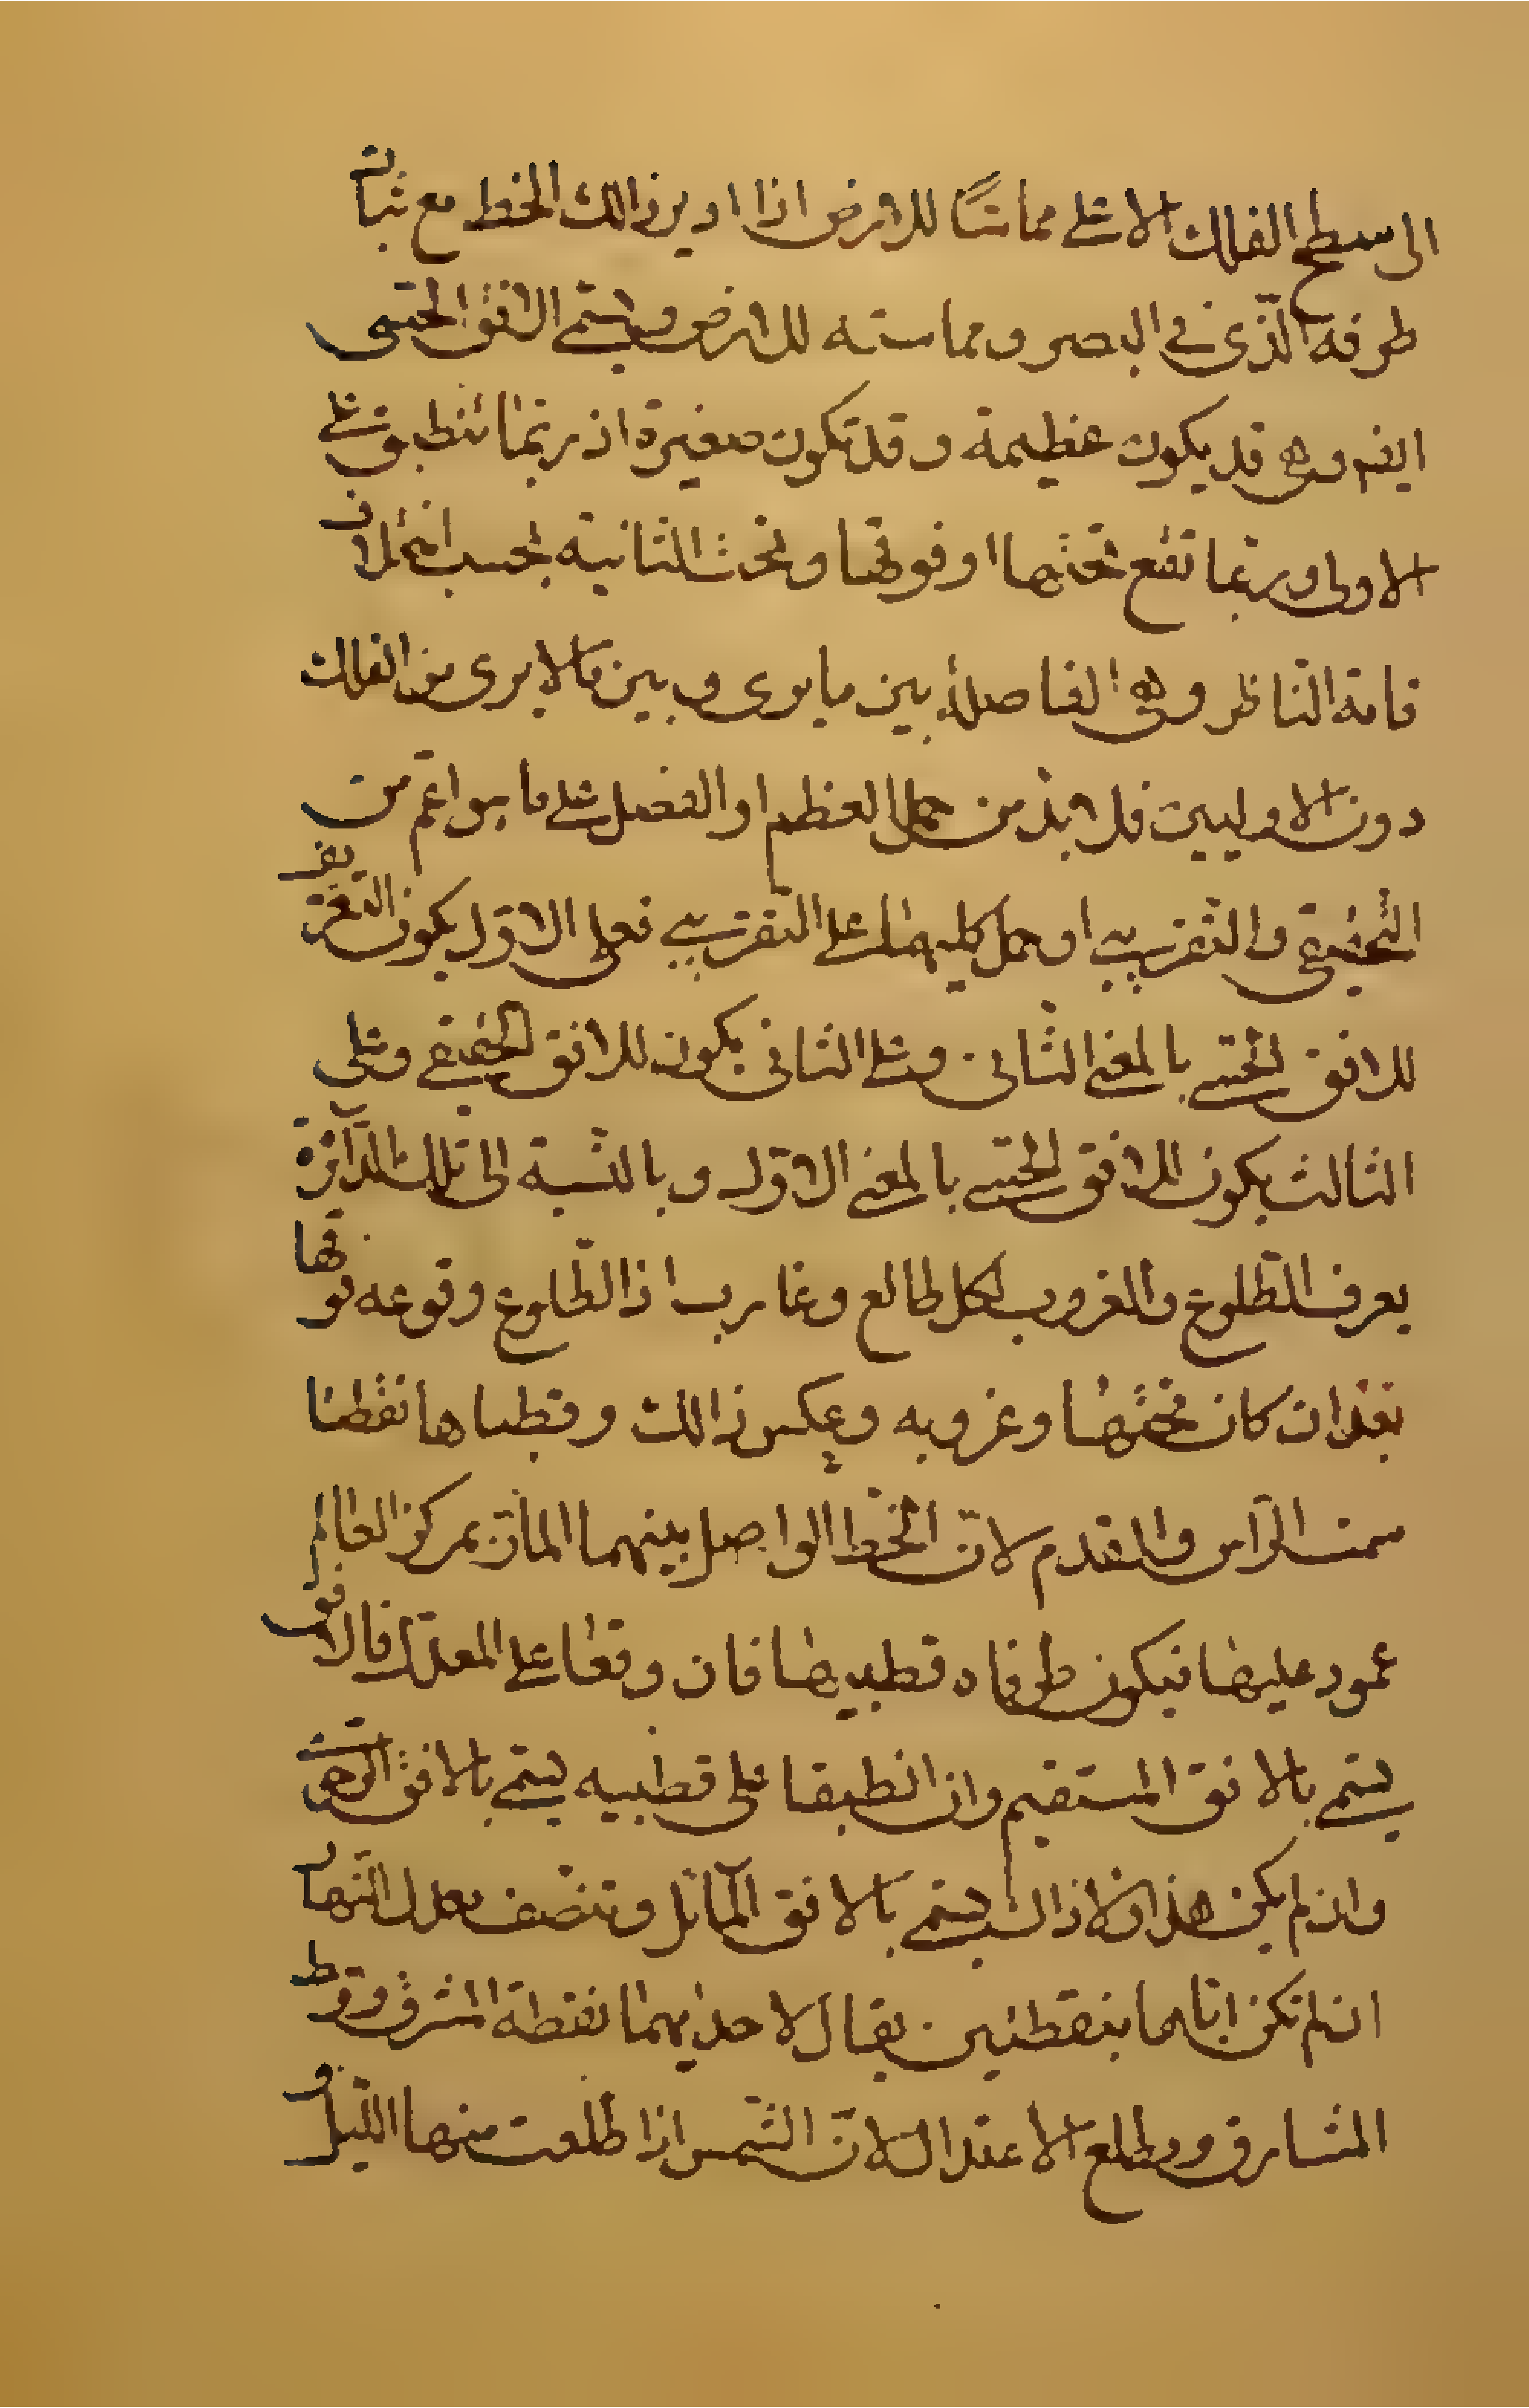 الى سطح الفلك الاعلى مماسًا للارض اذا ادير ذالك الخط مع ثبات
طرفه الذى فى البصر ومماسته للارض ويسمى الافق الحسى
ايضم وهى قد يكون عظيمة وقد تكون صغيرة اذ ربما تنطبق على
الاولى وربما تقع تحتها او فوقها وتحت الثانية بحسب اختلاف
قامة الناظر وهى الفاصلة بين ما يرى وبين ما لا يرى من الفلك
دون الاوليين فلا بد من حمل العظم او الفصل على ما هو اعم من
التحقيقى والتقريبى او حمل كليهما على التقريبى فعلى الاول يكون التعريف
للافق الحسى بالمعنى الثانى وعلى الثانى يكون للافق الحقيقى وعلى
الثالث يكون للافق الحسى بالمعنى الاول وبالنسبة الى تلك الدآئرة
يعرف الطلوع والغروب لكل طالع وغارب اذ الطلوع وقوعه فوقها
بعد ان كان تحتها وغروبه وعكس ذالك وقطباها نقطتا
سمت الرآس والقدم لان الخط الواصل بينهما المارّ بمركز العالم
عمود عليها فيكون طرفاه قطبيها فان وقعا على المعدل فالافق
يسمى بالافق المستقيم وان انطبقا على قطبيه يسمى بالافق الرحوى
وان لم يكن هذا ولا ذاك يسمى بالافق المآئل وتنصف معدل النهار
ان لم تكن اياها بنقطتين يقال لاحديهما نقطة المشرق وقط
المشارق ومطلع الاعتدال لان الشمس اذا طلعت منها الليل و